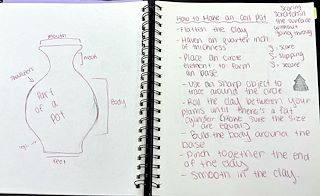 mouth
neck
shoulders
Part
of a
pot
Body
feet
How to Make an Coil Pot
- Flatten the clay
- Have an quarter inch
of thickness
- Place an circle
element to form
an base
- Use an sharp object to
trace around the circle
- Roll the clay between your
palms until there's a fat
cylinder (make sure the size
are equal)
- Build the body around the
base
- Pinch together the end
of the clay
- Smooth in the clay.
Scoring
scratches in
the surface
without
going
S - score
S - slipping
S - score